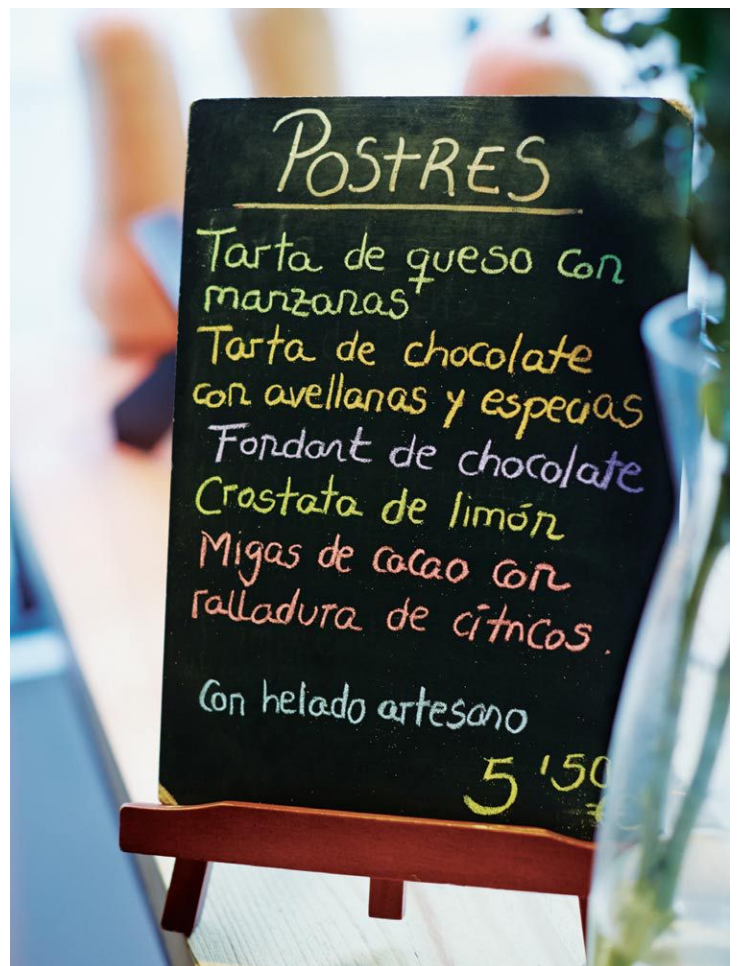 POSTRES
Tarta de queso con
manzanas
Tarta de chocolate
con avellanas y especias
Fondant de chocolate
Crostata de limón
Migas de cacao con
ralladura de cítricos.
Con helado artesano
5'50